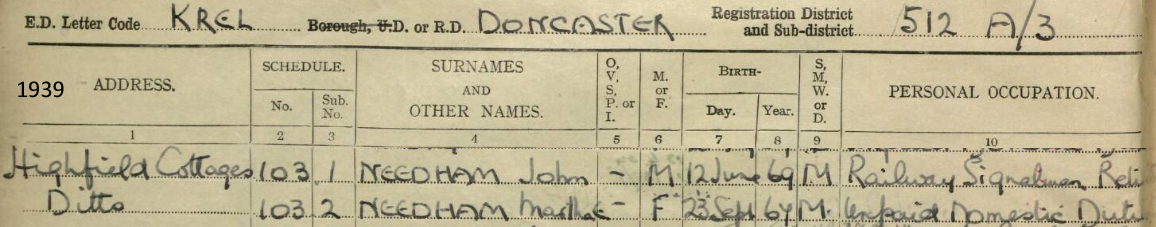 E.D. Letter Code KREL Borough, U.D. or R.D. DONCASTER Registration District and Sub-district 512 A/3
1939 ADDRESS. SCHEDULE. No. Sub. No. SURNAMES AND OTHER NAMES. O, V, S, P. or I. M. or F. BIRTH- Day. Year. S, M, W. or D. PERSONAL OCCUPATION.
1 2 3 4 5 6 7 8 9 10
Highfield Cottages 103 1 NEEDHAM John – M 12 June 69 M Railway Signalman Reti
Ditto 103 2 NEEDHAM Martha – F 23 Sept 67 M. Unpaid Domestic Duti